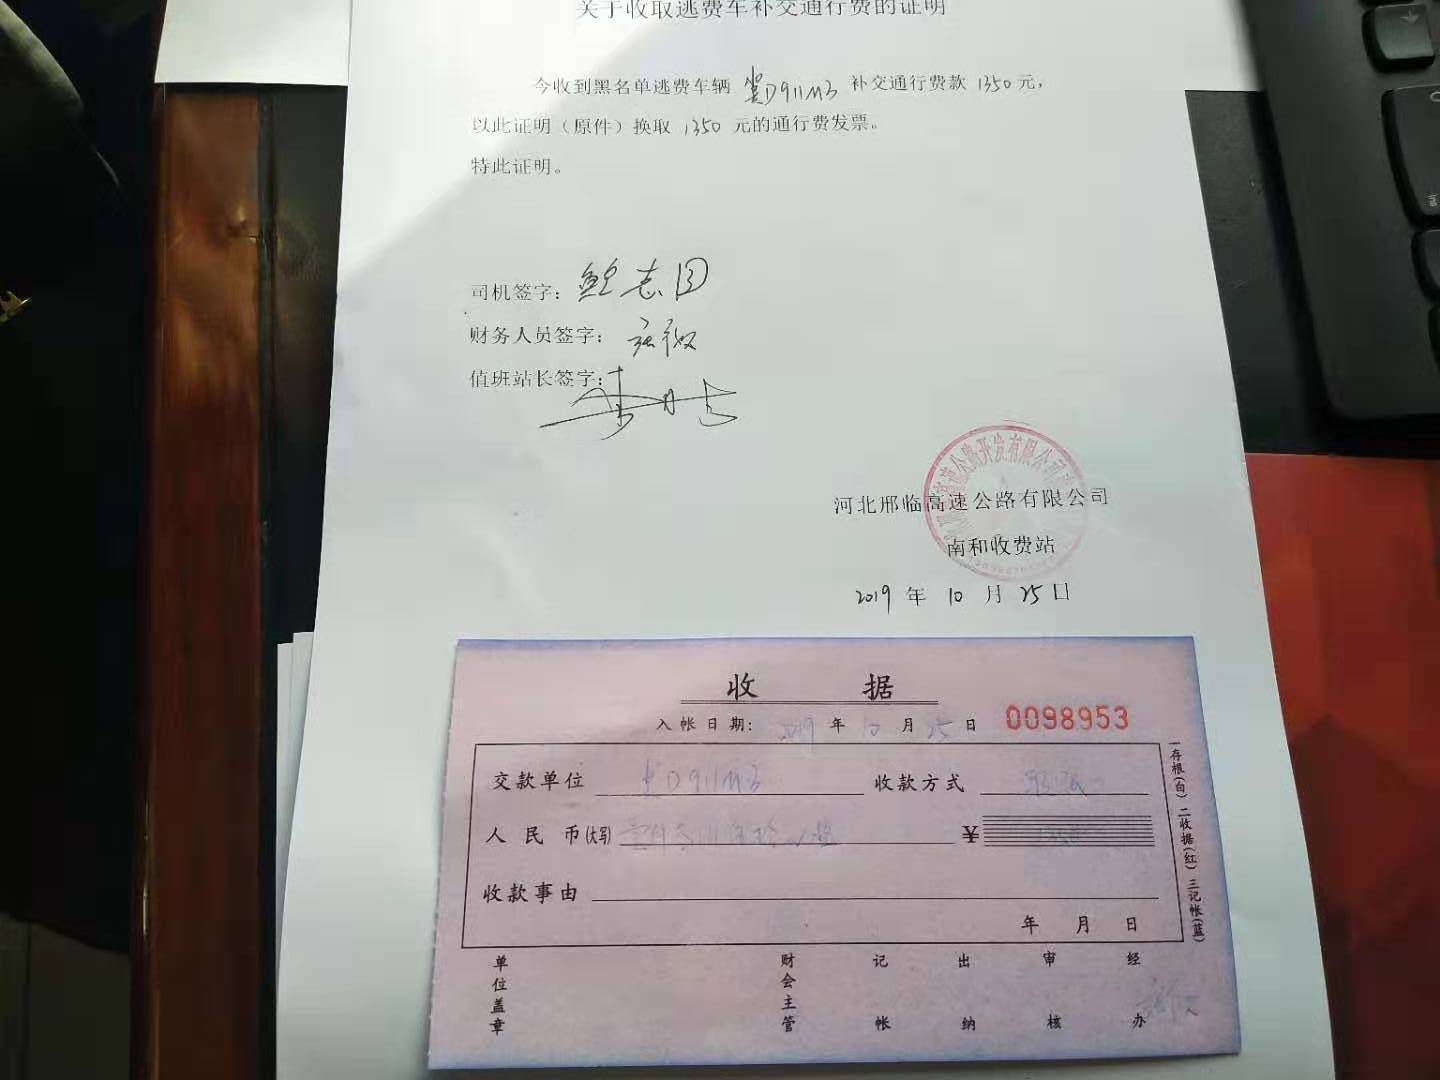 关于收取逃费车补交通行费的证明
今收到黑名单逃费车辆 冀D911M3 补交通行费款 1350 元，
以此证明（原件）换取 1350 元的通行费发票。
特此证明。
司机签字：
财务人员签字：
值班站长签字：
河北邢临高速公路有限公司
南和收费站
2019 年 10 月 25 日
收 据
入帐日期： 2019 年 10 月 25 日 0098953
交款单位 冀D911M3 收款方式
人民币(大写) ¥
收款事由
年 月 日
一存根(白) 二收据(红) 三记帐(蓝)
单位盖章 财会主管 记帐 出纳 审核 经办